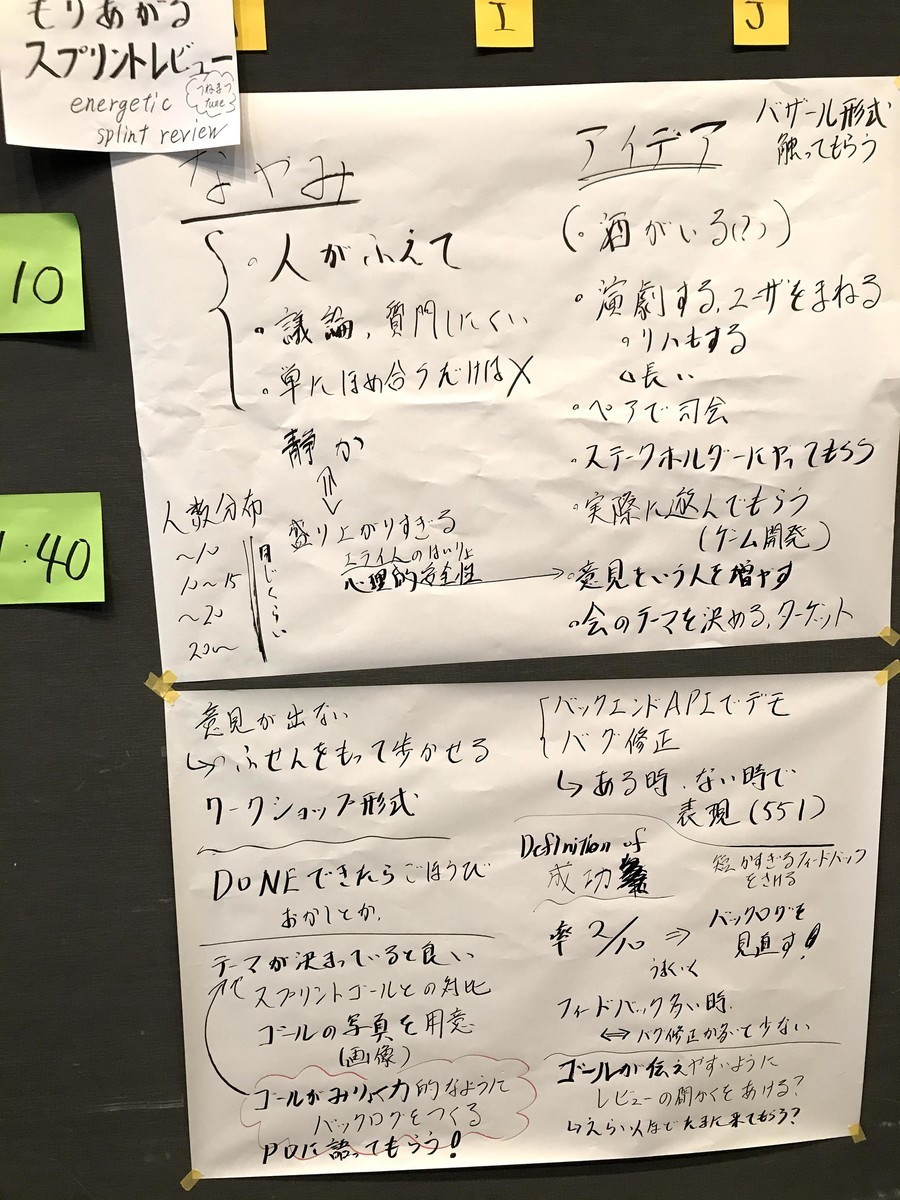 もりあがる
スプリントレビュー
energetic
splint review
つねまつ
tune
I
J
10
:40
なやみ
・人がふえて
・議論、質問しにくい
・単にほめ合うだけは×
静か
盛り上がりすぎる
エライ人のはいりょ
心理的安全性
人数分布
〜10
10〜15
〜20
20〜
同じくらい
アイデア
バザール形式
触ってもらう
(・酒がいる(?))
・演劇する、ユーザをまねる
・リハもする
長い
・ペアで司会
・ステークホルダーにやってもらう
・実際に遊んでもらう
(ゲーム開発)
・意見をいう人を増やす
・会のテーマを決める、ターゲット
意見が出ない
↳ふせんをもって歩かせる
ワークショップ形式
DONEできたらごほうび
おかしとか、
テーマが決まっていると良い
スプリントゴールとの対比
ゴールの写真を用意
(画像)
ゴールがみりょく力的なように
バックログをつくる
POに語ってもらう!
バックエンドAPIでデモ
バグ修正
↳ある時、ない時で
表現(551)
Definition of
成功
短かすぎるフィードバック
をさける
率 2/10 ⇒ バックログを
見直す!
うまくいく
フィードバック多い時、
⇔バグ修正が多いと少ない
ゴールが伝えやすいように
レビューの間かくをあける?
↳えらい人ほどたまに来てもらう?